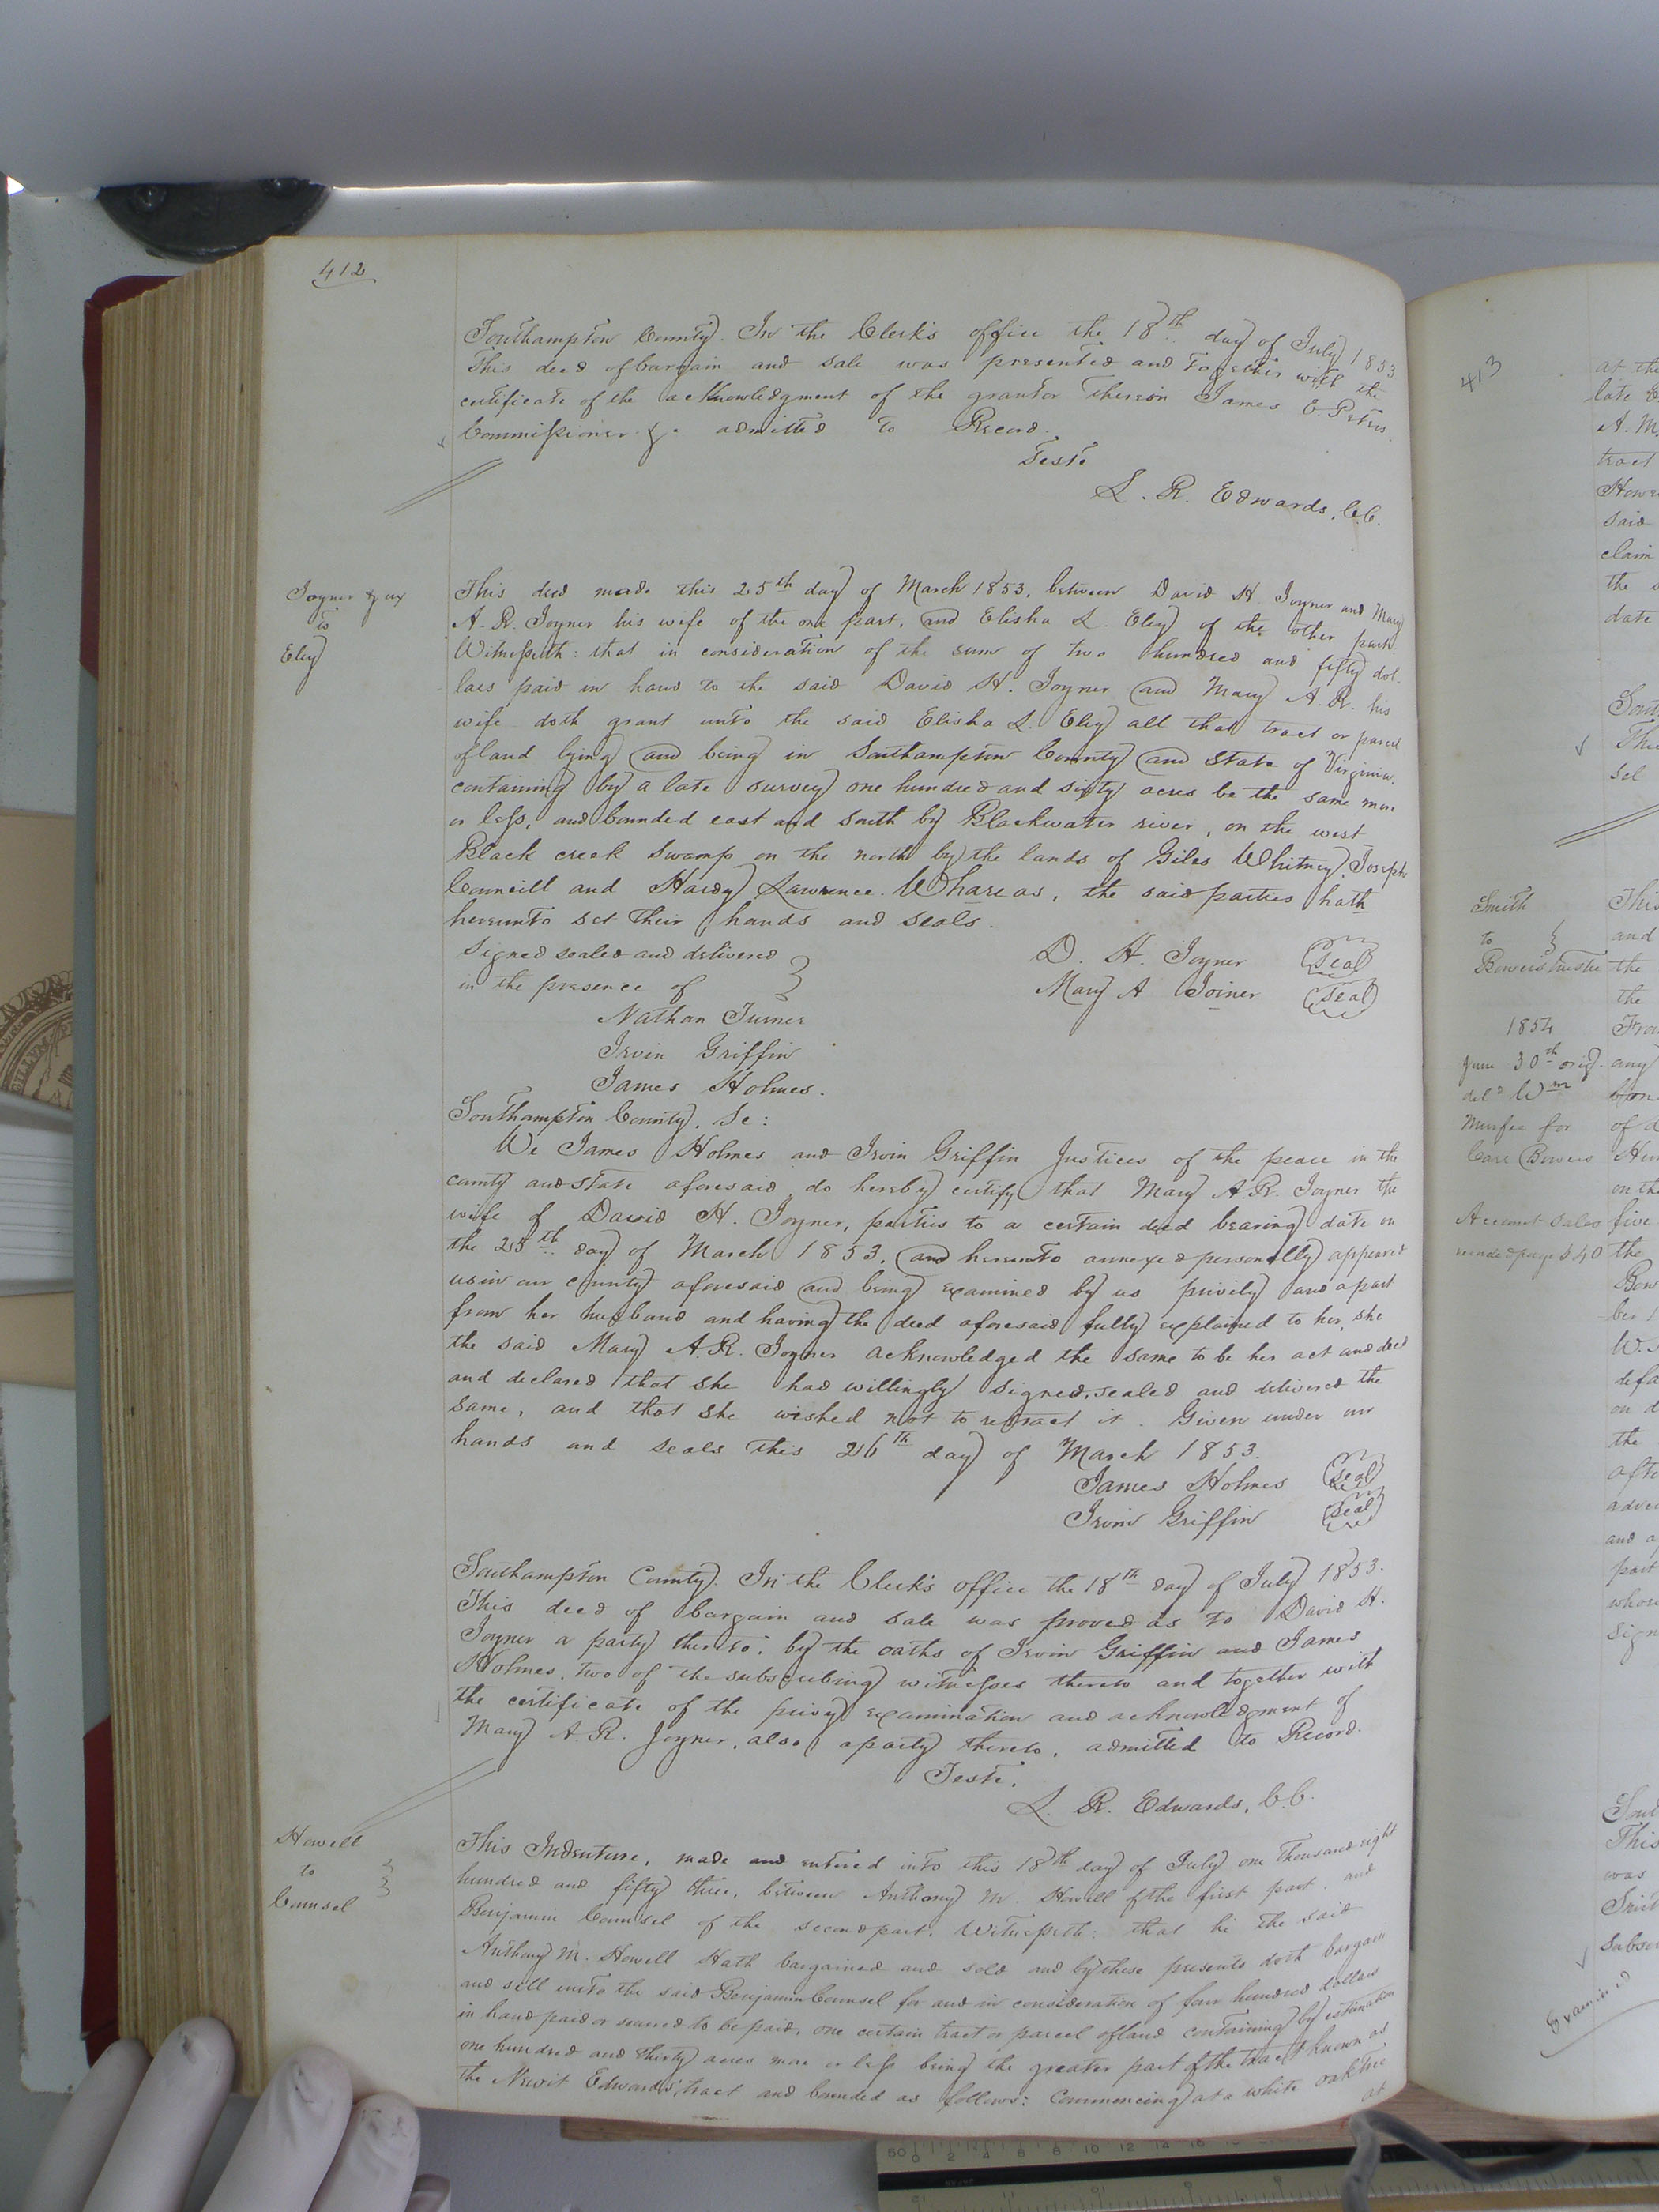 412
Southampton County. In the Clerk's office the 18th day of July 1853
This deed of bargain and sale was presented and together with the
certificate of the acknowledgment of the grantor thereon James E. Peters
Commissioner &c. admitted to Record.
Teste
L. R. Edwards, C.C.
Joyner & ux
to
Eley
This deed made this 25th day of March 1853, between David H. Joyner and Mary
A. R. Joyner his wife of the one part, and Elisha L. Eley of the other part.
Witnesseth: that in consideration of the sum of two hundred and fifty dol-
lars paid in hand to the said David H. Joyner and Mary A. R. his
wife doth grant unto the said Elisha L. Eley all that tract or parcel
of land lying and being in Southampton County and State of Virginia.
containing by a late survey one hundred and sixty acres be the same more
or less, and bounded east and south by Blackwater river, on the west
Black creek Swamp on the north by the lands of Giles Whitney, Joseph
Councill and Hardy Lawrence. Whareas, the said parties hath
hereunto set their hands and seals.
Signed sealed and delivered
in the presence of
D. H. Joyner (Seal)
Mary A Joiner (Seal)
Nathan Turner
Irvin Griffin
James Holmes.
Southampton County, Sc:
We James Holmes and Irvin Griffin Justices of the peace in the
county and state aforesaid do hereby certify that Mary A.R. Joyner the
wife of David H. Joyner, parties to a certain deed bearing date on
the 25th day of March 1853, and hereunto annexed personally appeared
us in our county aforesaid and being examined by us privily and apart
from her husband and having the deed aforesaid fully explained to her, she
the said Mary A.R. Joyner acknowledged the same to be her act and deed
and declared that she had willingly signed, sealed and delivered the
same, and that she wished not to retract it. Given under our
hands and seals this 26th day of March 1853.
James Holmes (Seal)
Irvin Griffin (Seal)
Southampton County. In the Clerk's office the 18th day of July 1853.
This deed of bargain and sale was proved as to David H.
Joyner a party thereto, by the oaths of Irvin Griffin and James
Holmes, two of the subscribing witnesses thereto and together with
the certificate of the privy examination and acknowledgment of
Mary A. R. Joyner, also a party thereto, admitted to Record.
Teste.
L. R. Edwards, C.C.
Howell
to
Counsel
This Indenture, made and entered into this 18th day of July one thousand eight
hundred and fifty three, between Anthony M. Howell of the first part, and
Benjamin Counsel of the second part. Witnesseth: that he the said
Anthony M. Howell Hath bargained and sold and by these presents doth bargain
and sell unto the said Benjamin Counsel for and in consideration of four hundred dollars
in hand paid or secured to be paid, one certain tract or parcel of land containing by estimation
one hundred and thirty acres more or less being the greater part of the tract known as
the Newit Edwards tract and bounded as follows: Commencing at a white oak tree
at
413
at the
late
A. M
tract
Howe
said
claim
the
date
Sout
This
Sel
Smith
to
Bowers trustee
This
and
the
the
1854
June 30th orig.
deld Wm
Murfee for
Carr Bowers
any
of
on the
Account Sales
recorded page 540
five
the
Bow
ber
W.
defa
on d
the
afte
adver
and a
part
whose
Sign
Sout
This
was
Smit
Subsc
Examined